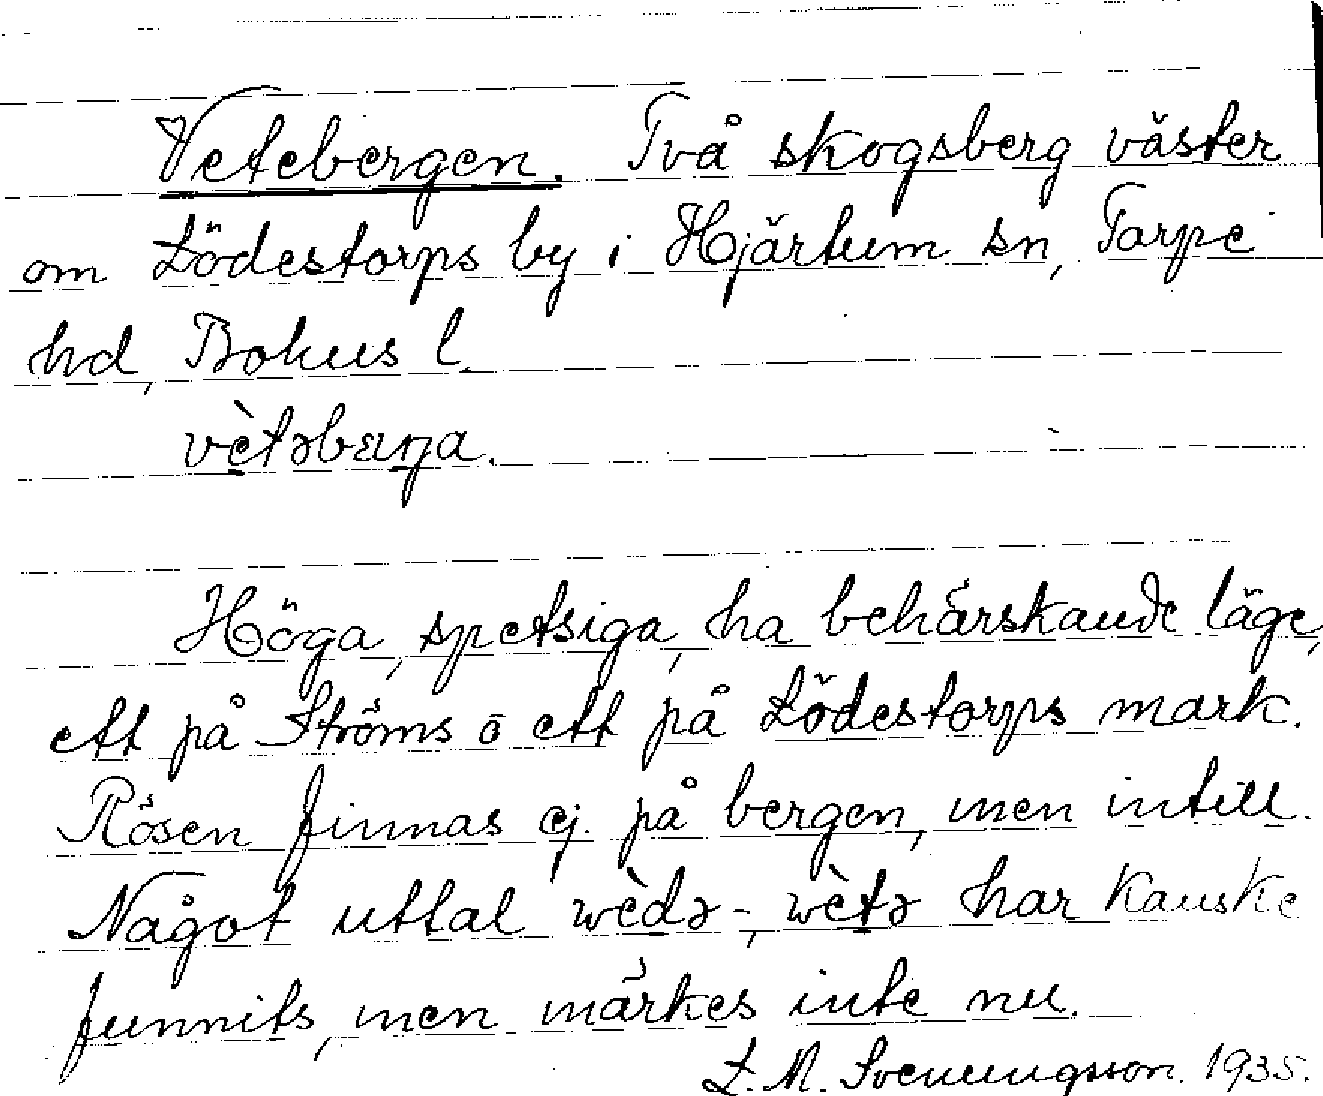 Vetebergen. Två skogsberg väster
om Lödestorps by i Hjärtum sn, Torpe
hd, Bohus l.
vètəbæŋa.
Höga, spetsiga, ha behärskande läge,
ett på Ströms o ett på Lödestorps mark.
Rösen finnas ej på bergen, men intill.
Något uttal wèdə-, wètə har kanske
funnits, men märkes inte nu.
L. M. Svenungsson. 1935.